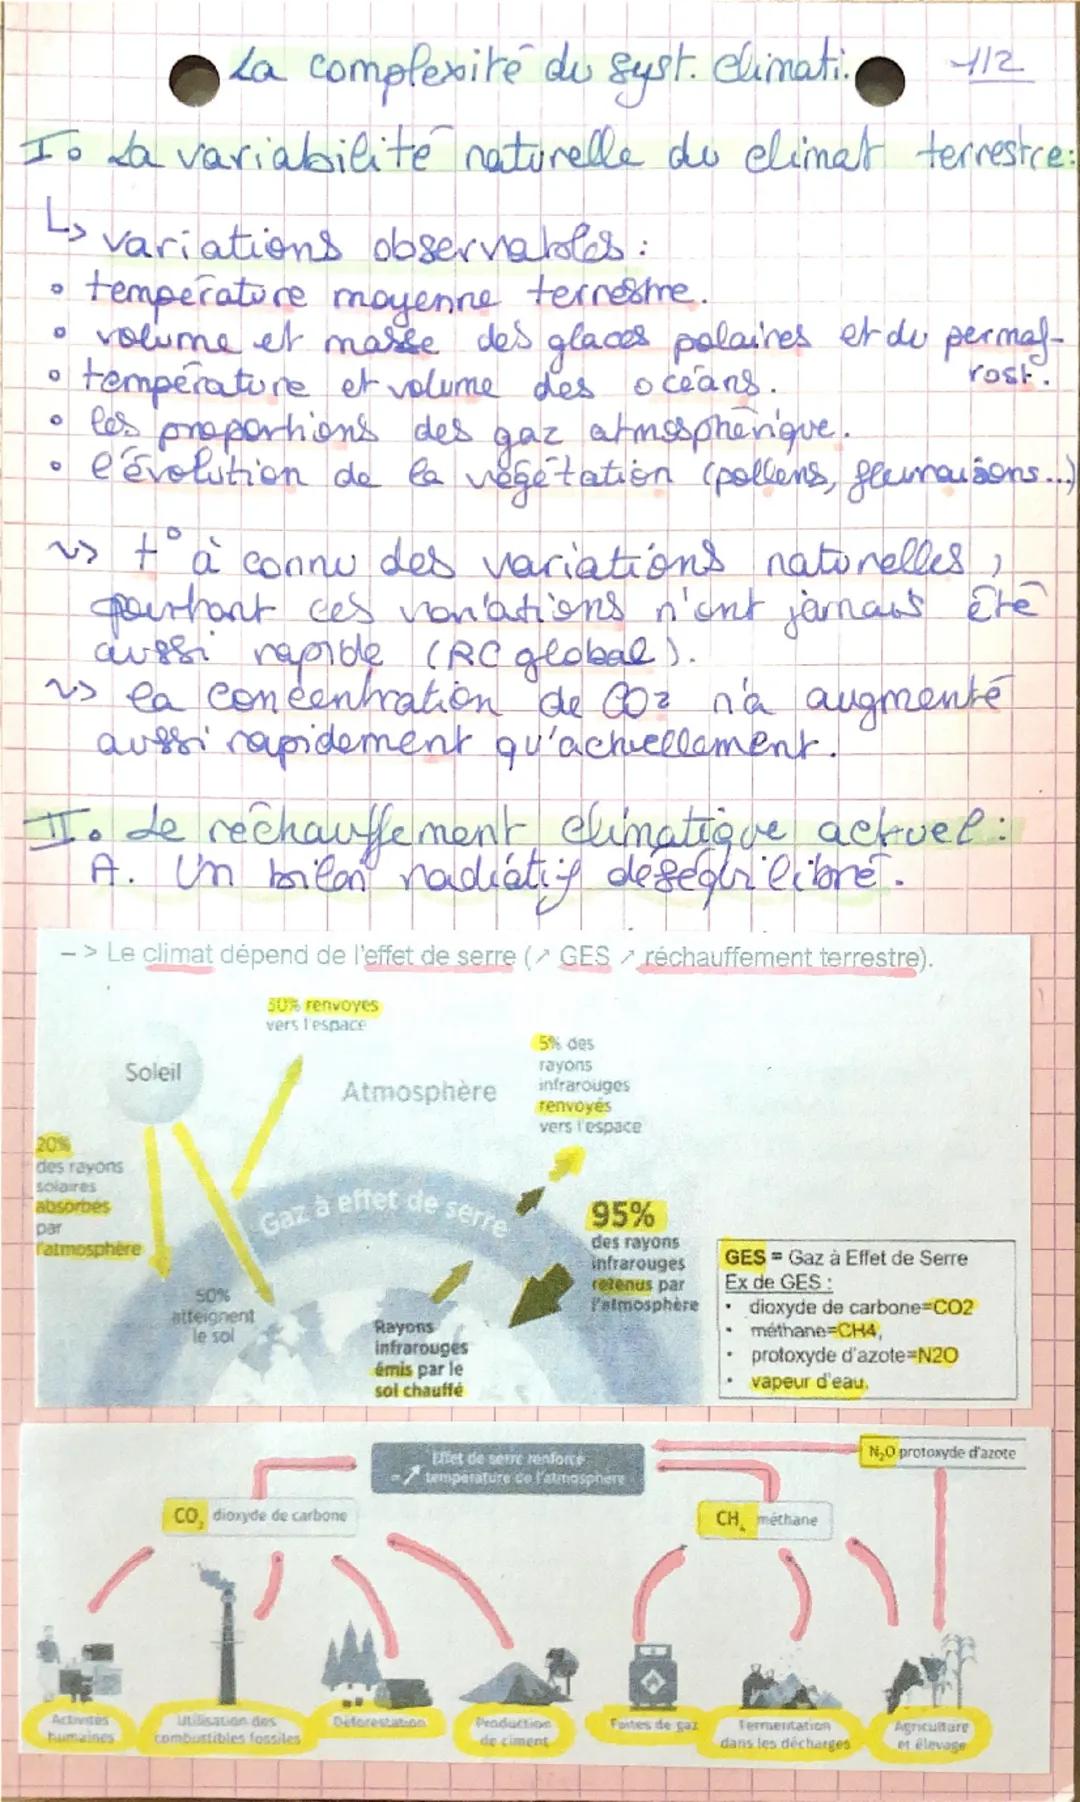 La complexité du syst. climati.
1/2
I. La variabilité naturelle du climat terrestre:
↳ variations observables :
• température moyenne terrestre.
• volume et masse des glaces polaires et du permaf-
rost.
• température et volume des océans.
• les proportions des gaz atmosphérique.
• l'évolution de la végétation (pollens, fleuraisons...)
~> t° à connu des variations naturelles,
pourtant ces variations n'ont jamais été
aussi rapide (RC global).
~> la concentration de CO2 n'a augmenté
aussi rapidement qu'actuellement.
II. Le réchauffement climatique actuel :
A. Un bilan radiatif déséquilibré.
-> Le climat dépend de l'effet de serre (↗ GES ↗ réchauffement terrestre).
30% renvoyés
vers l'espace
Soleil
Atmosphère
5% des
rayons
infrarouges
renvoyés
vers l'espace
20%
des rayons
solaires
absorbés
par
l'atmosphère
Gaz à effet de serre
95%
des rayons
infrarouges
retenus par
l'atmosphère
50%
atteignent
le sol
Rayons
infrarouges
émis par le
sol chauffé
GES = Gaz à Effet de Serre
Ex de GES :
• dioxyde de carbone=CO2
• méthane=CH4,
• protoxyde d'azote=N2O
• vapeur d'eau.
Effet de serre renforcé
= ↗ température de l'atmosphère
N₂O protoxyde d'azote
CO₂ dioxyde de carbone
CH₄ méthane
Activités
humaines
Utilisation des
combustibles fossiles
Déforestation
Production
de ciment
Fuites de gaz
Fermentation
dans les décharges
Agriculture
et élevage